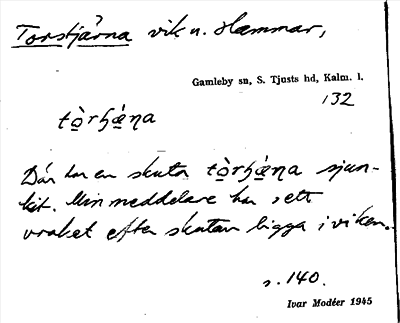 Torstjärna vik u. Hammar,
Gamleby sn, S. Tjusts hd, Kalm. l.
132
tòrɧǽna
Där har en skuta tòrɧǽna sjun-
kit. Min meddelare har sett
vraket efter skutan ligga i viken.
s. 140.
Ivar Modéer 1945